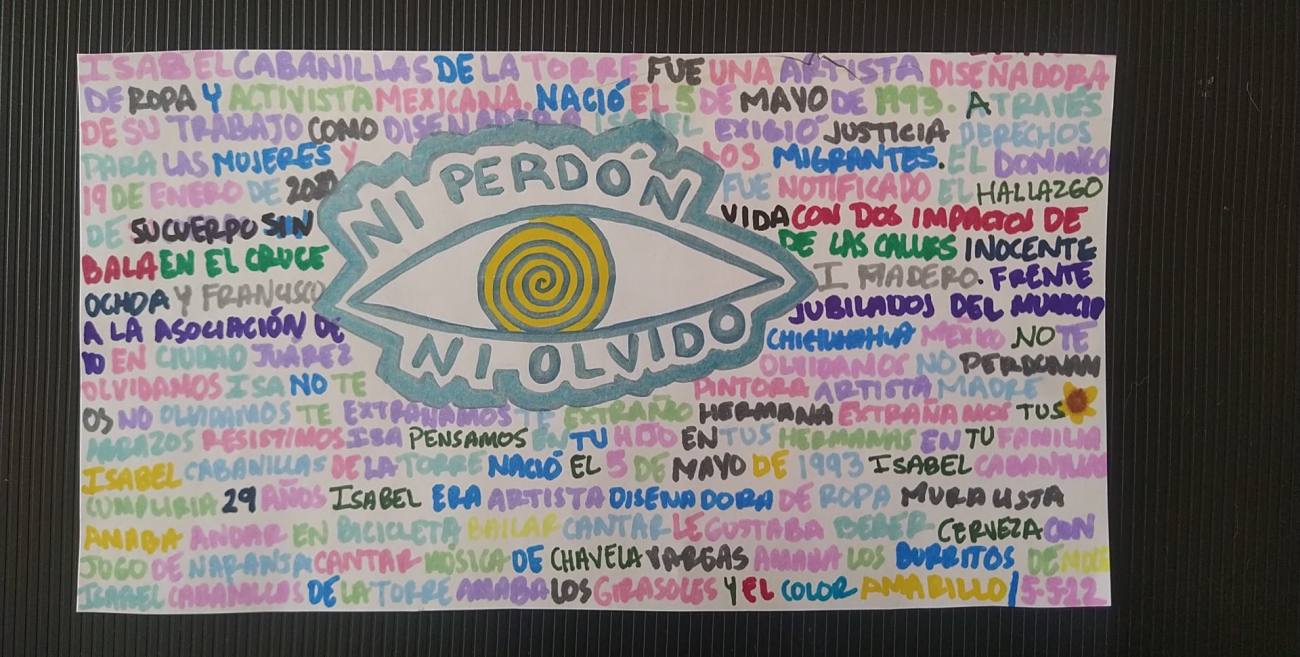 ISABEL CABANILLAS DE LA TORRE FUE UNA ARTISTA DISEÑADORA
DE ROPA Y ACTIVISTA MEXICANA. NACIÓ EL 5 DE MAYO DE 1993. A TRAVÉS
DE SU TRABAJO COMO DISEÑADORA ISABEL EXIGIÓ JUSTICIA DERECHOS
PARA LAS MUJERES Y LOS MIGRANTES. EL DOMINGO
19 DE ENERO DE FUE NOTIFICADO EL HALLAZGO
DE SU CUERPO SIN VIDA CON DOS IMPACTOS DE
BALA EN EL CRUCE DE LAS CALLES INOCENTE
OCHOA Y FRANCISCO I MADERO. FRENTE
A LA ASOCIACIÓN DE JUBILADOS DEL MUNICIP
IO EN CIUDAD JUÁREZ CHIHUAHUA MÉXICO NO TE
OLVIDAMOS ISA NO TE OLVIDAMOS NO PERDONAM
OS NO OLVIDAMOS TE EXTRAÑAMOS PINTORA ARTISTA MADRE
TE EXTRAÑO HERMANA EXTRAÑAMOS TUS
ABRAZOS RESISTIMOS ISA PENSAMOS EN TU HIJO EN TUS HERMANAS EN TU FAMILIA
ISABEL CABANILLAS DE LA TORRE NACIÓ EL 5 DE MAYO DE 1993 ISABEL CABANILLAS
CUMPLIRIA 29 AÑOS ISABEL ERA ARTISTA DISEÑADORA DE ROPA MURALISTA
AMABA ANDAR EN BICICLETA BAILAR CANTAR LE GUSTABA BEBER CERVEZA CON
JUGO DE NARANJA CANTAR MÚSICA DE CHAVELA VARGAS AMABA LOS BURRITOS DE
ISABEL CABANILLAS DE LA TORRE AMABA LOS GIRASOLES Y EL COLOR AMARILLO / 5-5-22
NI PERDÓN
NI OLVIDO